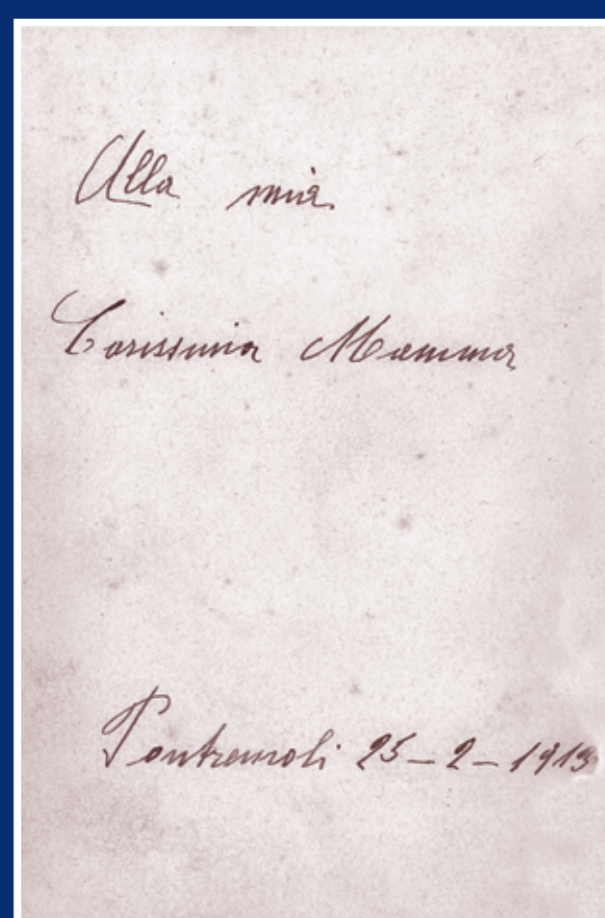 Alla mia
Carissima Mamma
Pontremoli 25-2-1913